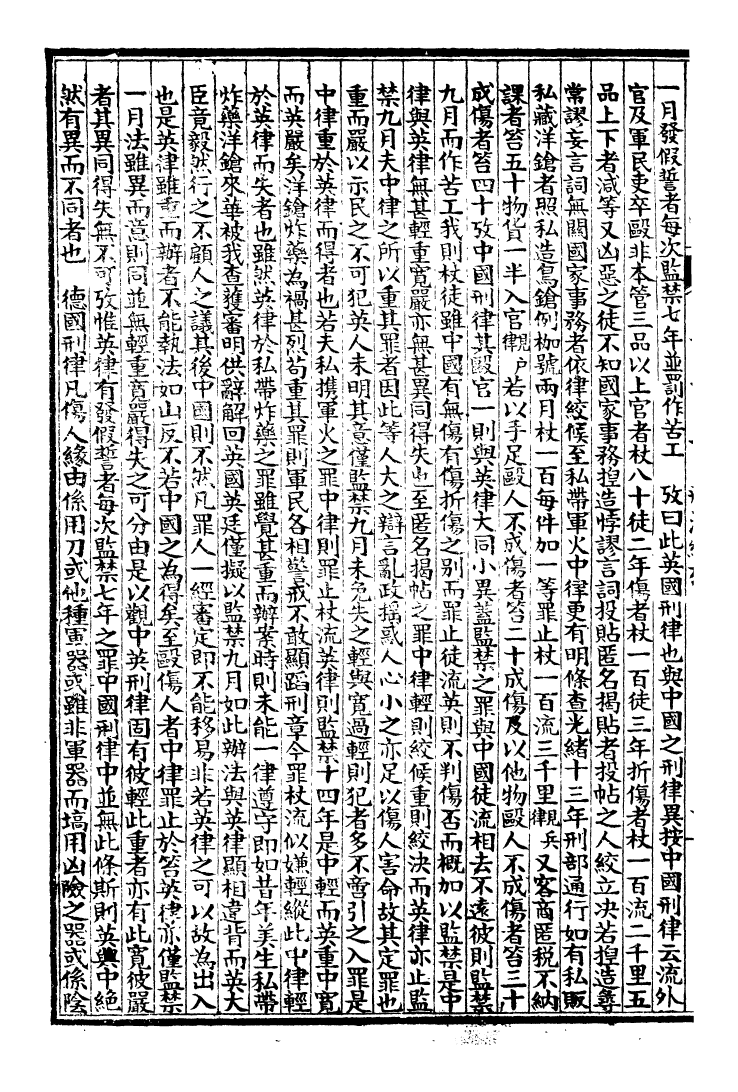 一月發假誓者每次監禁七年並罰作苦工　攷曰此英國刑律也與中國之刑律異按中國刑律云流外
官及軍民吏卒毆非本管三品以上官者杖八十徒二年傷者杖一百徒三年折傷者杖一百流二千里五
品上下者減等又凶惡之徒不知國家事務揑造悖謬言詞投貼匿名揭貼者投帖之人絞立决若揑造尋
常謬妄言詞無關國家事務者依律絞候至私帶軍火中律更有明條查光緒十三年刑部通行如有私販
私藏洋鎗者照私造鳥鎗例枷號兩月杖一百每件加一等罪止杖一百流三千里兵律觀又客商匿税不納
課者笞五十物貨一半入官戶律觀若以手足毆人不成傷者笞二十成傷及以他物毆人不成傷者笞三十
成傷者笞四十攷中國刑律其毆官一則與英律大同小異蓋監禁之罪與中國徒流相去不遠彼則監禁
九月而作苦工我則杖徒雖中國有無傷有傷折傷之别而罪止徒流英則不判傷否而概加以監禁是中
律與英律無甚輕重寬嚴亦無甚異同得失也至匿名揭帖之罪中律輕則絞候重則絞决而英律亦止監
禁九月夫中律之所以重其罪者因此等人大之辯言亂政摇惑人心小之亦足以傷人害命故其定罪也
重而嚴以示民之不可犯英人未明其意僅監禁九月未免失之輕與寬過輕則犯者多不啻引之入罪是
中律重於英律而得者也若夫私携軍火之罪中律則罪止杖流英律則監禁十四年是中輕而英重中寬
而英嚴矣洋鎗炸藥為禍甚烈苟重其罪則軍民各相警戒不敢顯蹈刑章今罪杖流似嫌輕縱此中律輕
於英律而失者也雖然英律於私帶炸藥之罪雖覺甚重而辦案時則未能一律遵守即如昔年美生私帶
炸藥洋鎗來華被我查獲審明供辭解回英國英廷僅擬以監禁九月如此辦法與英律顯相違背而英大
臣竟毅然行之不顧人之議其後中國則不然凡罪人一經審定即不能移易非若英律之可以故為出入
也是英律雖重而辦者不能執法如山反不若中國之為得矣至毆傷人者中律罪止於笞英律亦僅監禁
一月法雖異而意則同並無輕重寬嚴得失之可分由是以觀中英刑律固有彼輕此重者亦有此寬彼嚴
者其異同得失無不可攷惟英律有發假誓者每次監禁七年之罪中國刑律中並無此條斯則英與中絕
然有異而不同者也　德國刑律凡傷人緣由係用刀或他種軍器或雖非軍器而塙用凶險之器或係陰